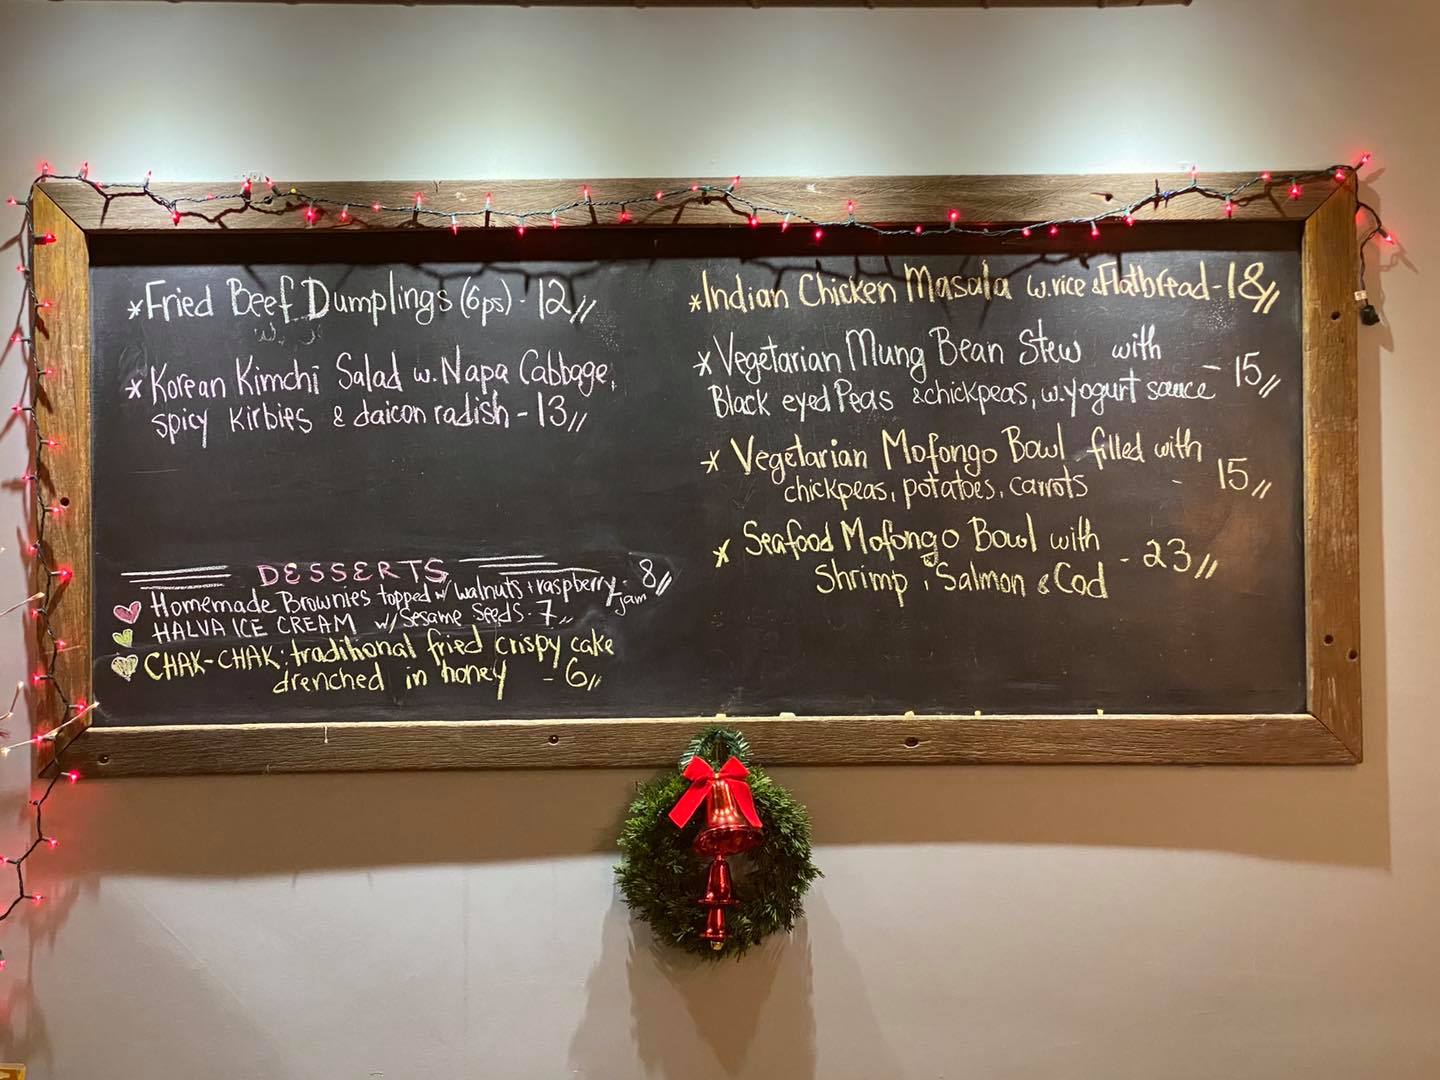 *Fried Beef Dumplings (6ps) - 12//
*Korean Kimchi Salad w. Napa Cabbage,
spicy Kirbies & daicon radish - 13//
DESSERTS
Homemade Brownies topped w/ walnuts + raspberry jam - 8//
HALVA ICE CREAM w/ Sesame Seeds - 7//
CHAK-CHAK: traditional fried crispy cake
drenched in honey - 6//
*Indian Chicken Masala w. rice & Flatbread - 18//
*Vegetarian Mung Bean Stew with
Black eyed Peas & chickpeas, w. yogurt sauce - 15//
*Vegetarian Mofongo Bowl filled with
chickpeas, potatoes, carrots - 15//
*Seafood Mofongo Bowl with
Shrimp, Salmon & Cod - 23//